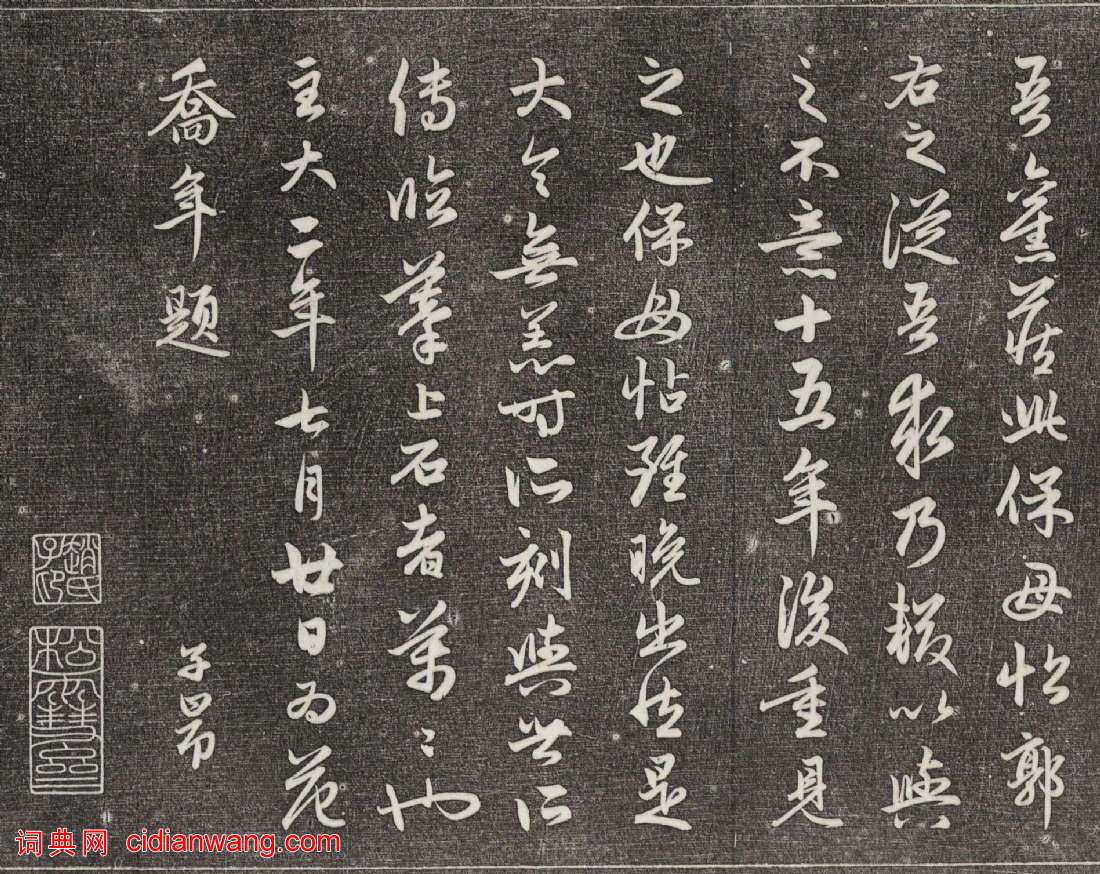 吾舊藏此保母帖郭
右之從吾求乃輟以與
之不意十五年後重見
之也保母帖雖晚出然是
大令無恙時所刻與世所
傳臨摹上石者萬々也
至大二年七月廿日為范
喬年題
子昂
趙氏子昂
松雪齋
词典网 cidianwang.com